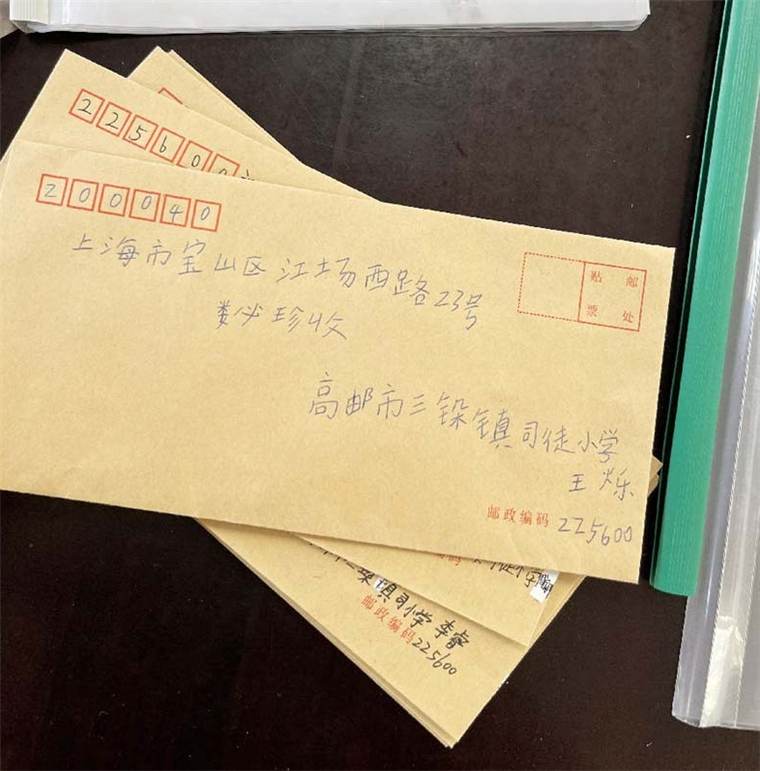 200040
上海市宝山区江场西路23号
娄必珍收
贴 邮
票 处
高邮市三垛镇司徒小学
王烁
邮政编码 225600
225600
司徒小学
垛镇司小学 李睿
邮政编码 225600